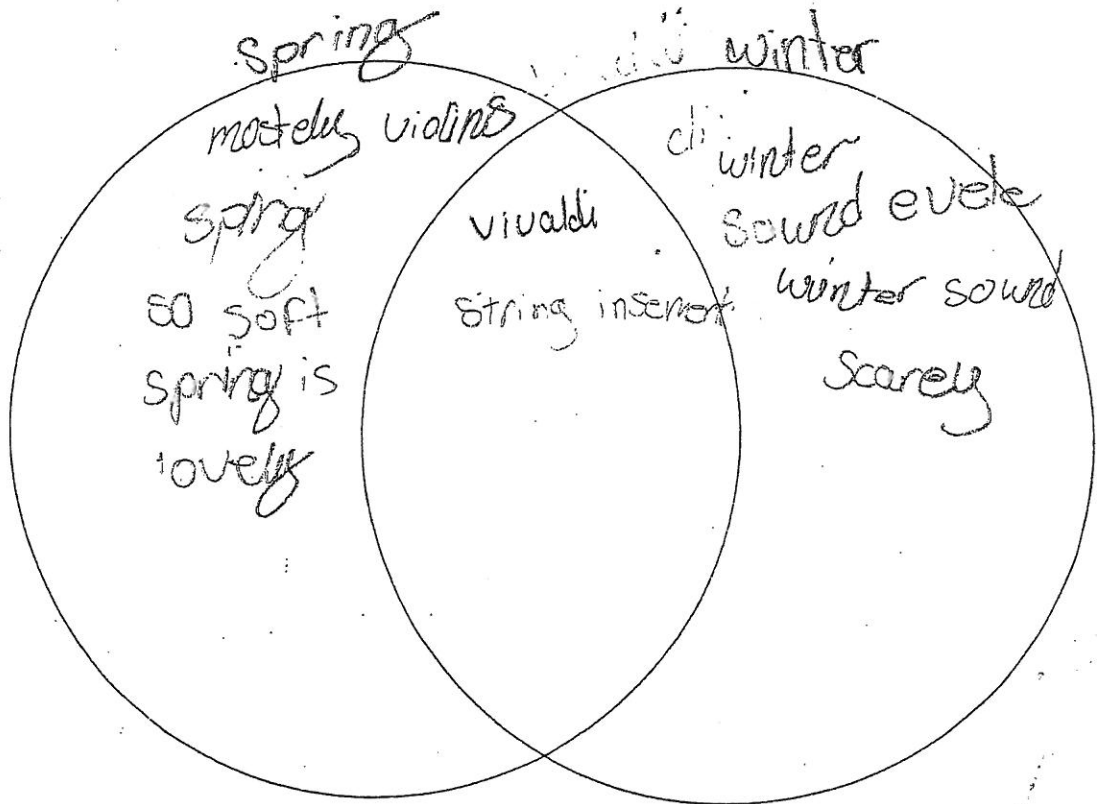 spring
winter
mostely violins
spring
so soft
spring is
lovely
vivaldi
string insemort
winter
sound evele
winter sound
scarely